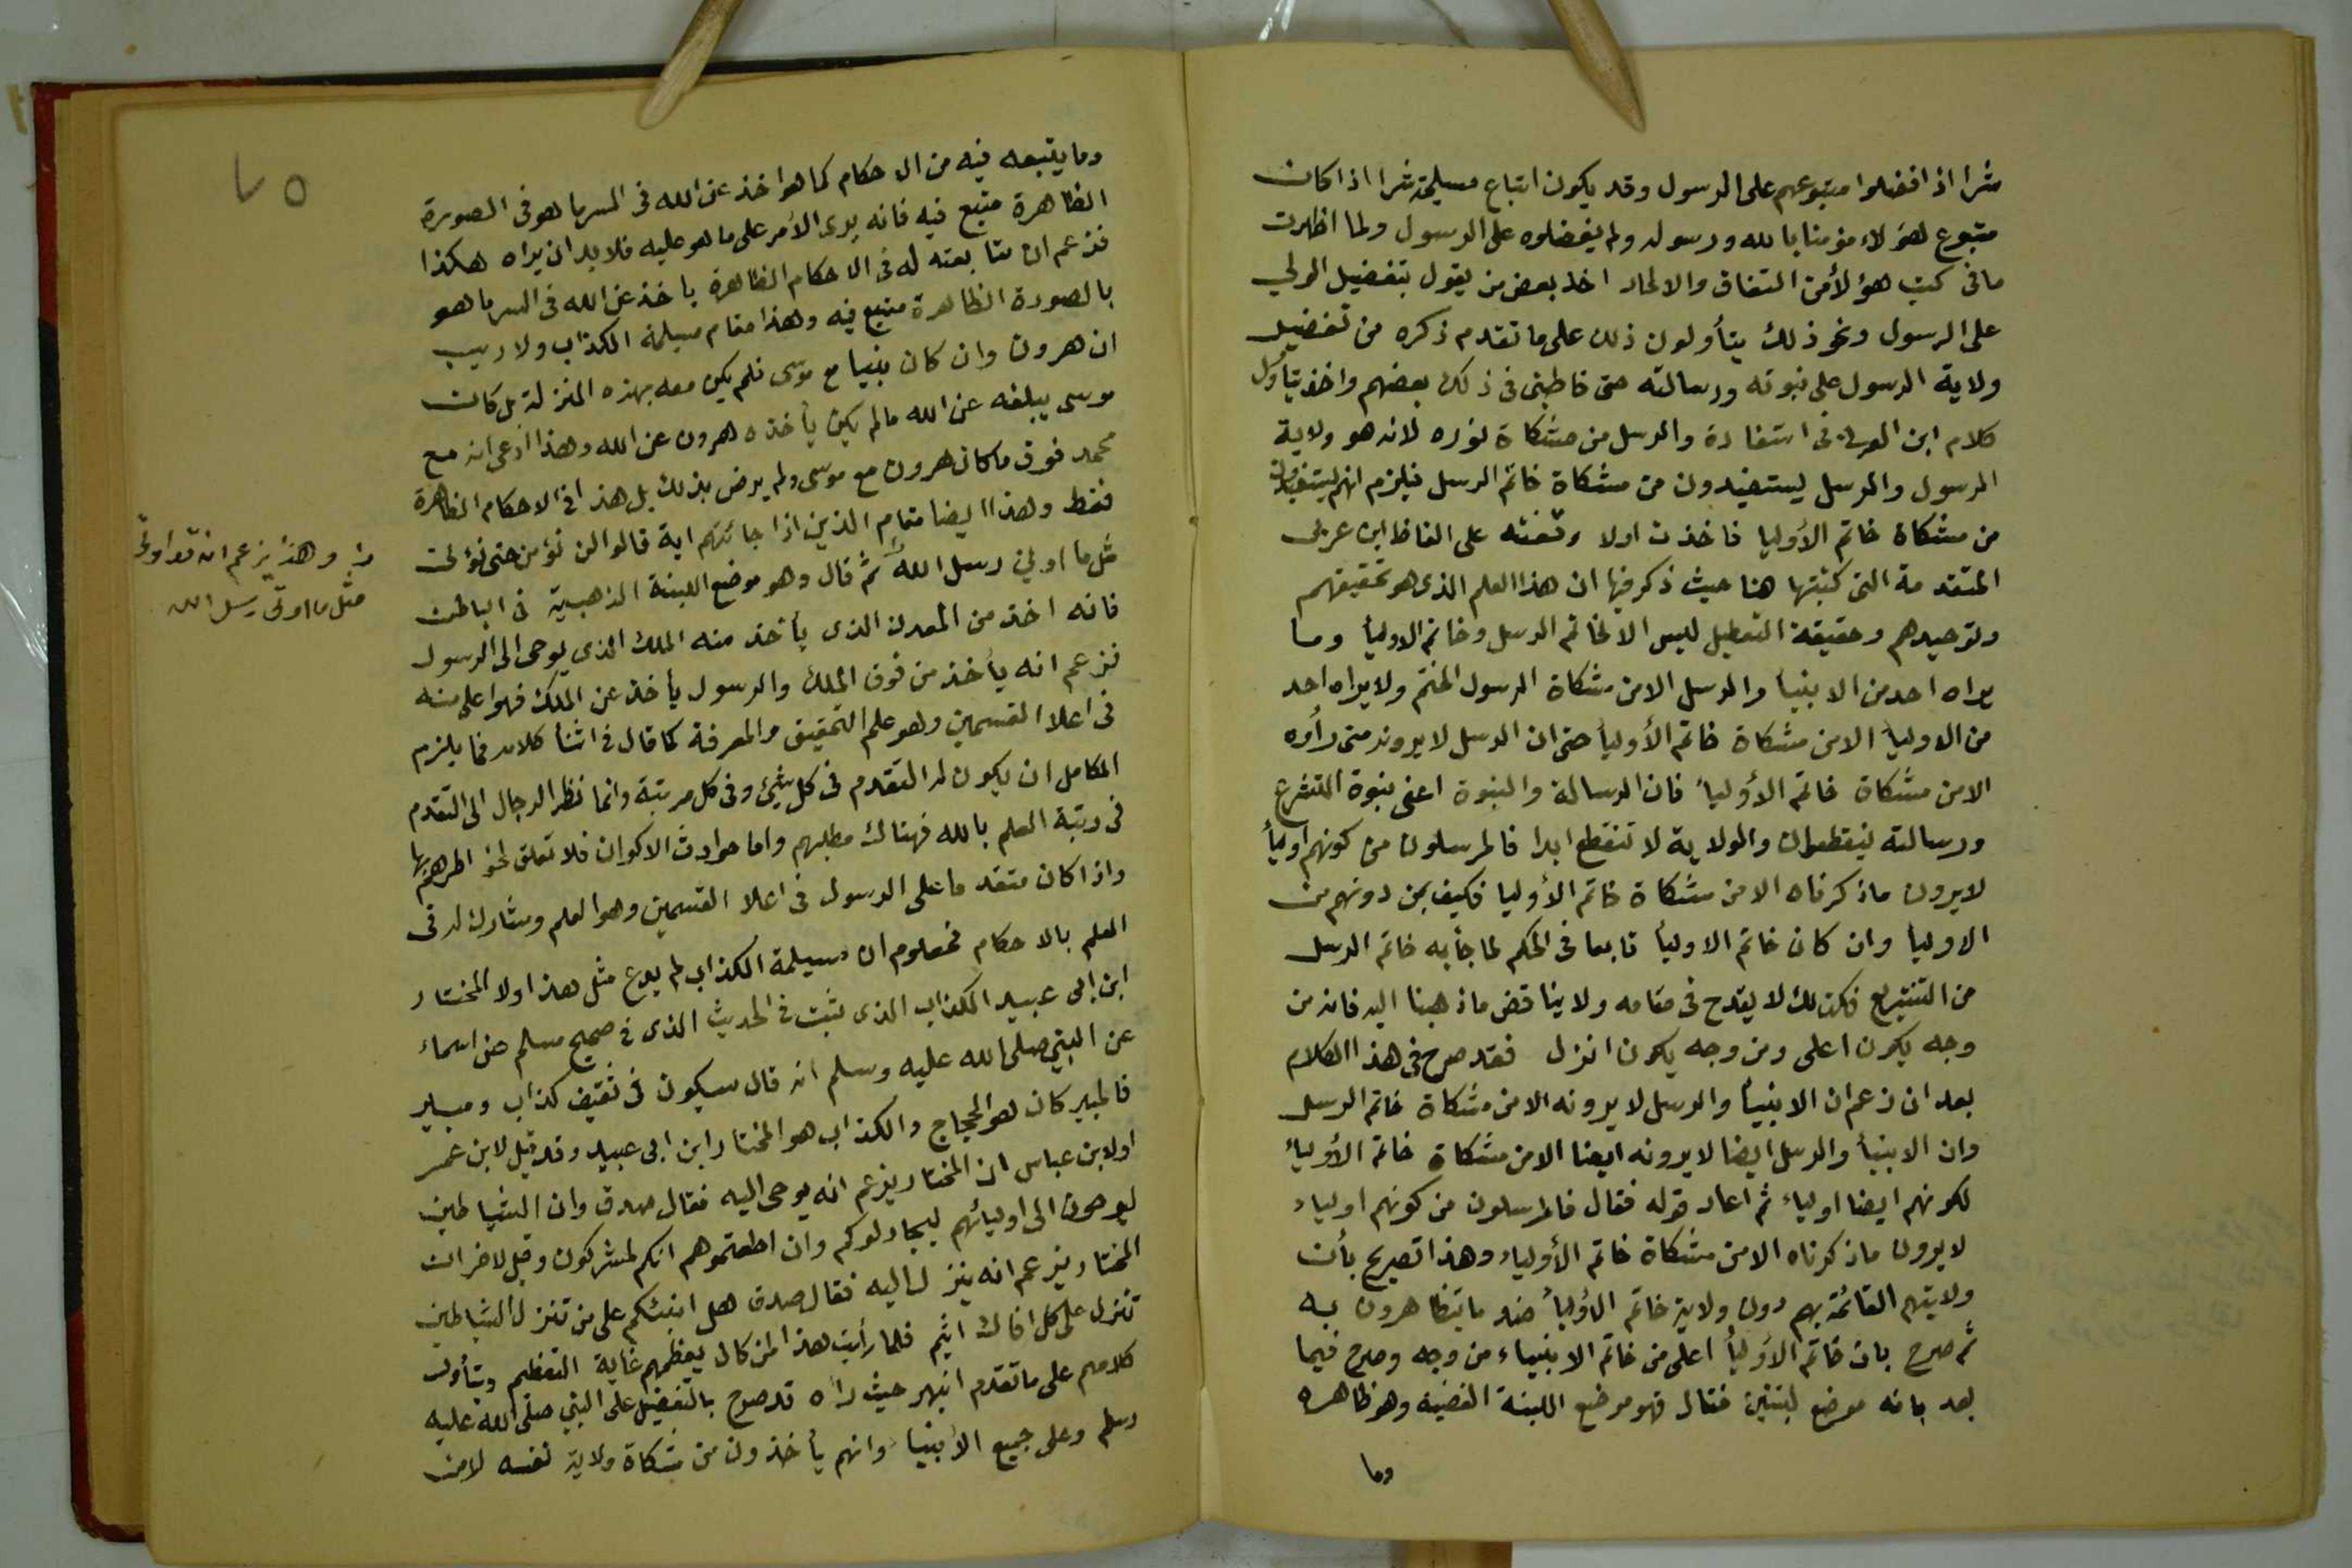 شرا اذ افضلوا متبوعهم على الرسول وقد يكون اتباع مسيلمة شرا اذ اكان
متبوع لهؤلاء مؤمنا بالله ورسوله ولم يفضلوه على الرسول ولما اظهرت
ما فى كتب هؤلأ من النفاق والالحاد اخذ بعض من يقول بتفضيل الولي
على الرسول ونحو ذلك يتأولون ذلك على ما تقدم ذكره من تفضيل
ولاية الرسول على نبوته ورسالته حتى خاطبنى فى ذلك بعضهم واخذ يتأول
كلام ابن العربى فى استفادة والرسل من مشكاة نوره لانه هو ولاية
الرسول والرسل يستفيدون من مشكاة خاتم الرسل فيلزم انهم يستفيدون
من مشكاة خاتم الأوليا فاخذت اولا وقفته على الفاظ ابن عربى
المتقدمة التى كتبتها هنا حيث ذكر فيها ان هذا العلم الذى هو تحقيقهم
وتوحيدهم وحقيقة التعطيل ليس الا لخاتم الرسل وخاتم الاوليأ وما
يراه احد من الانبيأ والرسل الا من مشكاة الرسول الختم ولا يراه احد
من الاوليأ الا من مشكاة خاتم الأوليأ حتى ان الرسل لا يرونه متى رأوه
الا من مشكاة خاتم الأوليأ فان الرسالة والنبوة اعنى نبوة التشرع
ورسالته ينقطعان والولاية لا تنقطع ابدا فالمرسلون من كونهم اوليأ
لا يرون ماذكرناه الا من مشكاة خاتم الأوليا فكيف بمن دونهم من
الاوليأ وان كان خاتم الاوليأ تابعا فى الحكم لما جأ به خاتم الرسل
من التشريع فذلك لا يقدح فى مقامه ولا يناقض ما ذهبنا اليه فانه من
وجه يكون اعلى ومن وجه يكون انزل فقد صرح فى هذا الكلام
بعد ان زعم ان الانبيأ والرسل لا يرونه الا من مشكاة خاتم الرسل
وان الانبيأ والرسل ايضا لا يرونه ايضا الا من مشكاة خاتم الأولياء
لكونهم ايضا اولياء ثم اعاد قوله فقال فالمرسلون من كونهم اولياء
لا يرون ماذكرناه الا من مشكاة خاتم الأولياء وهذا تصريح بأن
ولايتهم القائمة بهم دون ولاية خاتم الأوليأ ضد ما يتظاهرون به
ثم صرح بان خاتم الأوليأ اعلى من خاتم الانبياء من وجه وصرح فيما
بعد بانه موضع لبنتين فقال فهو موضع اللبنة الفضية وهو ظاهره
وما
٧٥
وما يتبعه فيه من الاحكام كما هو اخذ عن الله فى السر ما هو فى الصورة
الظاهرة متبع فيه فانه يرى الأمر على ما هو عليه فلا بد ان يراه هكذا
فزعم ان متابعته له فى الاحكام الظاهرة ياخذ عن الله فى السر ما هو
بالصورة الظاهرة متبع فيه وهذا مقام مسيلمة الكذاب ولا ريب
ان هرون وان كان نبيا مع موسى فلم يكن معه بهذه المنزلة بل كان
موسى يبلغه عن الله ما لم يكن يأخذه هرون عن الله وهذا ادعى انه مع
محمد فوق ما كان هرون مع موسى ولم يرض بذلك بل هذا فى الاحكام الظاهرة
فقط وهذا ايضا مقام الذين اذا جائتهم اية قالوا لن نؤمن حتى نؤتى
مثل ما اوتى رسل الله ثم قال وهو موضع اللبنة الذهبية فى الباطن
وهذا يزعم انه قد اوتى
مثل ما اوتى رسل الله
فانه اخذ من المعدن الذى يأخذ منه الملك الذى يوحى الى الرسول
فزعم انه يأخذ من فوق الملك والرسول يأخذ عن الملك فهو اعلى منه
فى اعلا القسمين وهو علم التحقيق والمعرفة كما قال فى اثنأ كلامه فما يلزم
الكامل ان يكون له التقدم فى كل شئ وفى كل مرتبة وانما نظر الرجال الى التقدم
فى رتبة العلم بالله فهناك مطلبهم واما حوادث الاكوان فلا تعلق لخواطرهم بها
واذا كان متقدما على الرسول فى اعلا القسمين وهو العلم ومشارك له فى
العلم بالاحكام فمعلوم ان مسيلمة الكذاب لم يدع مثل هذا ولا المختار
ابن ابى عبيد الكذاب الذى ثبت فى الحديث الذى فى صحيح مسلم عن اسماء
عن النبي صلى الله عليه وسلم انه قال سيكون فى ثقيف كذاب ومبير
فالمبير كان هو الحجاج والكذاب هو المختار ابن ابى عبيد وقد قيل لابن عمر
او لابن عباس ان المختار يزعم انه يوحى اليه فقال صدق وان الشياطين
ليوحون الى اوليائهم ليجادلوكم وان اطعتموهم انكم لمشركون وقيل لاخر ان
المختار يزعم انه ينزل اليه فقال صدق هل انبئكم على من تنزل الشياطين
تنزل على كل افاك اثيم فلما رأيت هذا لمن كان يعظمهم غاية التعظيم ويتأول
كلامهم على ما تقدم انبهر حيث رأه قد صرح بالتفضيل على النبي صلى الله عليه
وسلم وعلى جميع الأنبيا وانهم يأخذون من مشكاة ولاية نفسه لا من